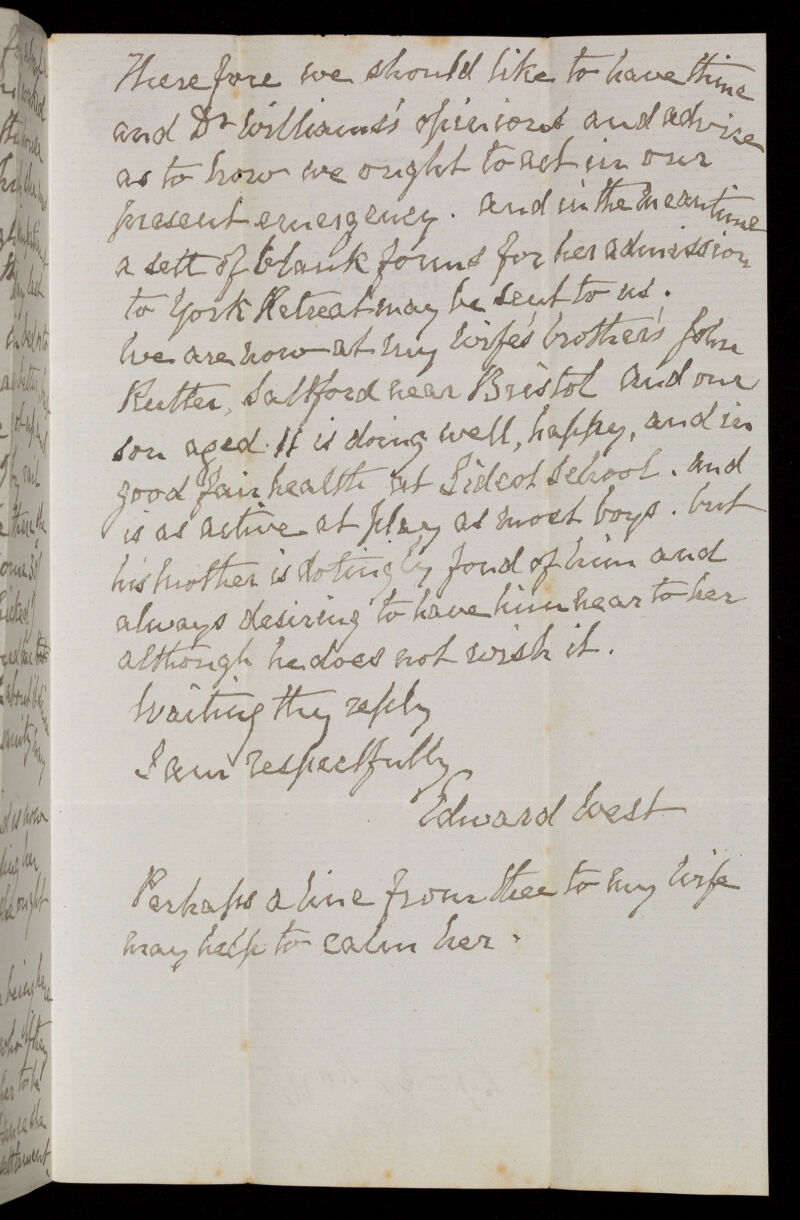 Therefore we should like to have thine
and Dr Williams's opinions and advice
as to how we ought to act in our
present emergency. and in the meantime
a sett of blank forms for her admission
to York Retreat may be sent to us.
We are now at my wife's brother's John
Rutter, Saltford near Bristol and our
son aged 11 is doing well, happy, and in
good fair health at Sidcot School. and
is as active at play as most boys. but
his mother is dotingly fond of him and
always desiring to have him near to her
although he does not wish it.
Waiting thy reply
I am respectfully
Edward West
Perhaps a line from thee to my wife
may help to calm her.